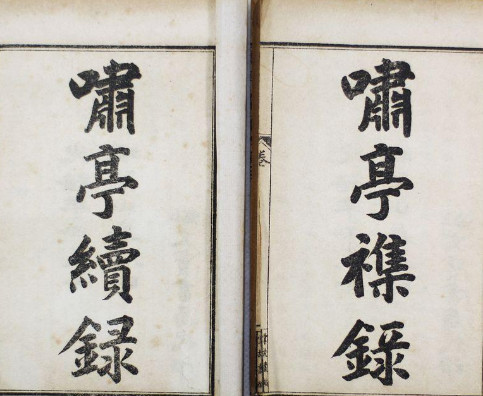 嘯亭襍錄
嘯亭續錄